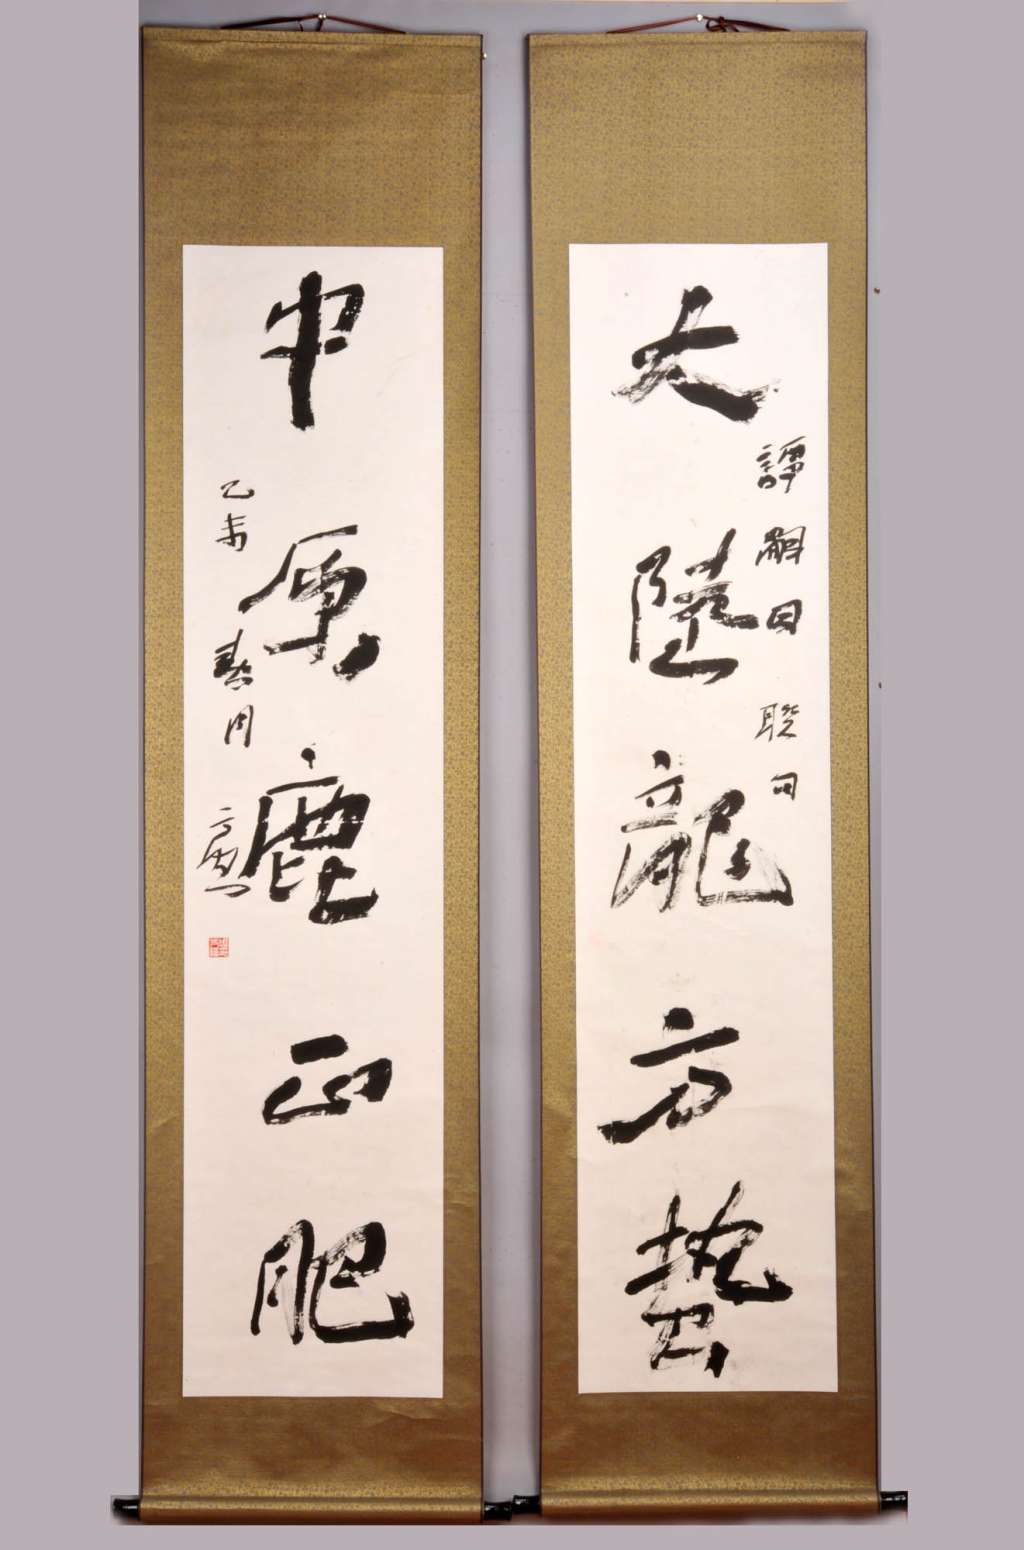 大陸龍方蟄
譚嗣同聯句
中原鹿正肥
乙未春月